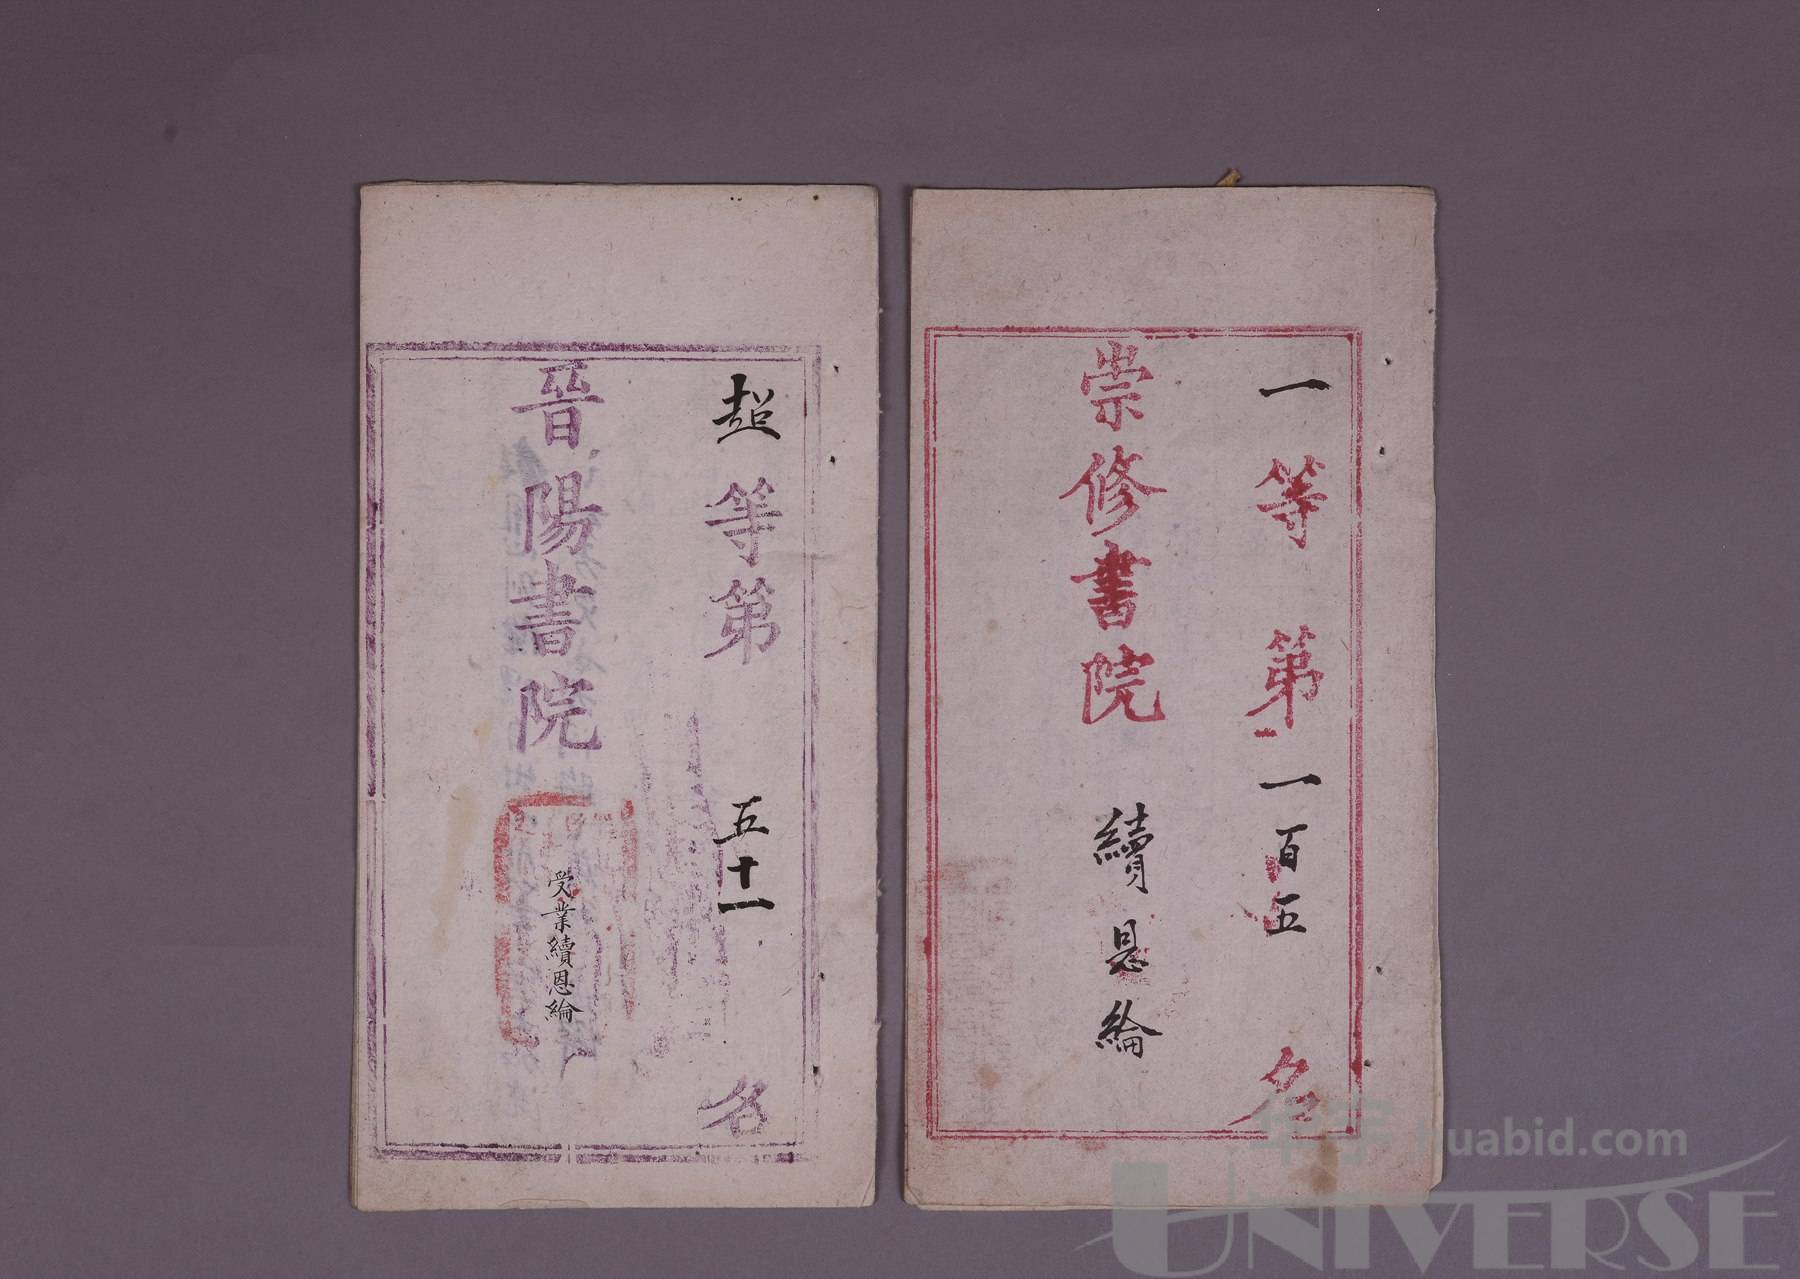 一等第一百五名
崇修書院 續恩綸
超等第五十一名
晉陽書院
受業續恩綸
华宇 huabid.com
UNIVERSE